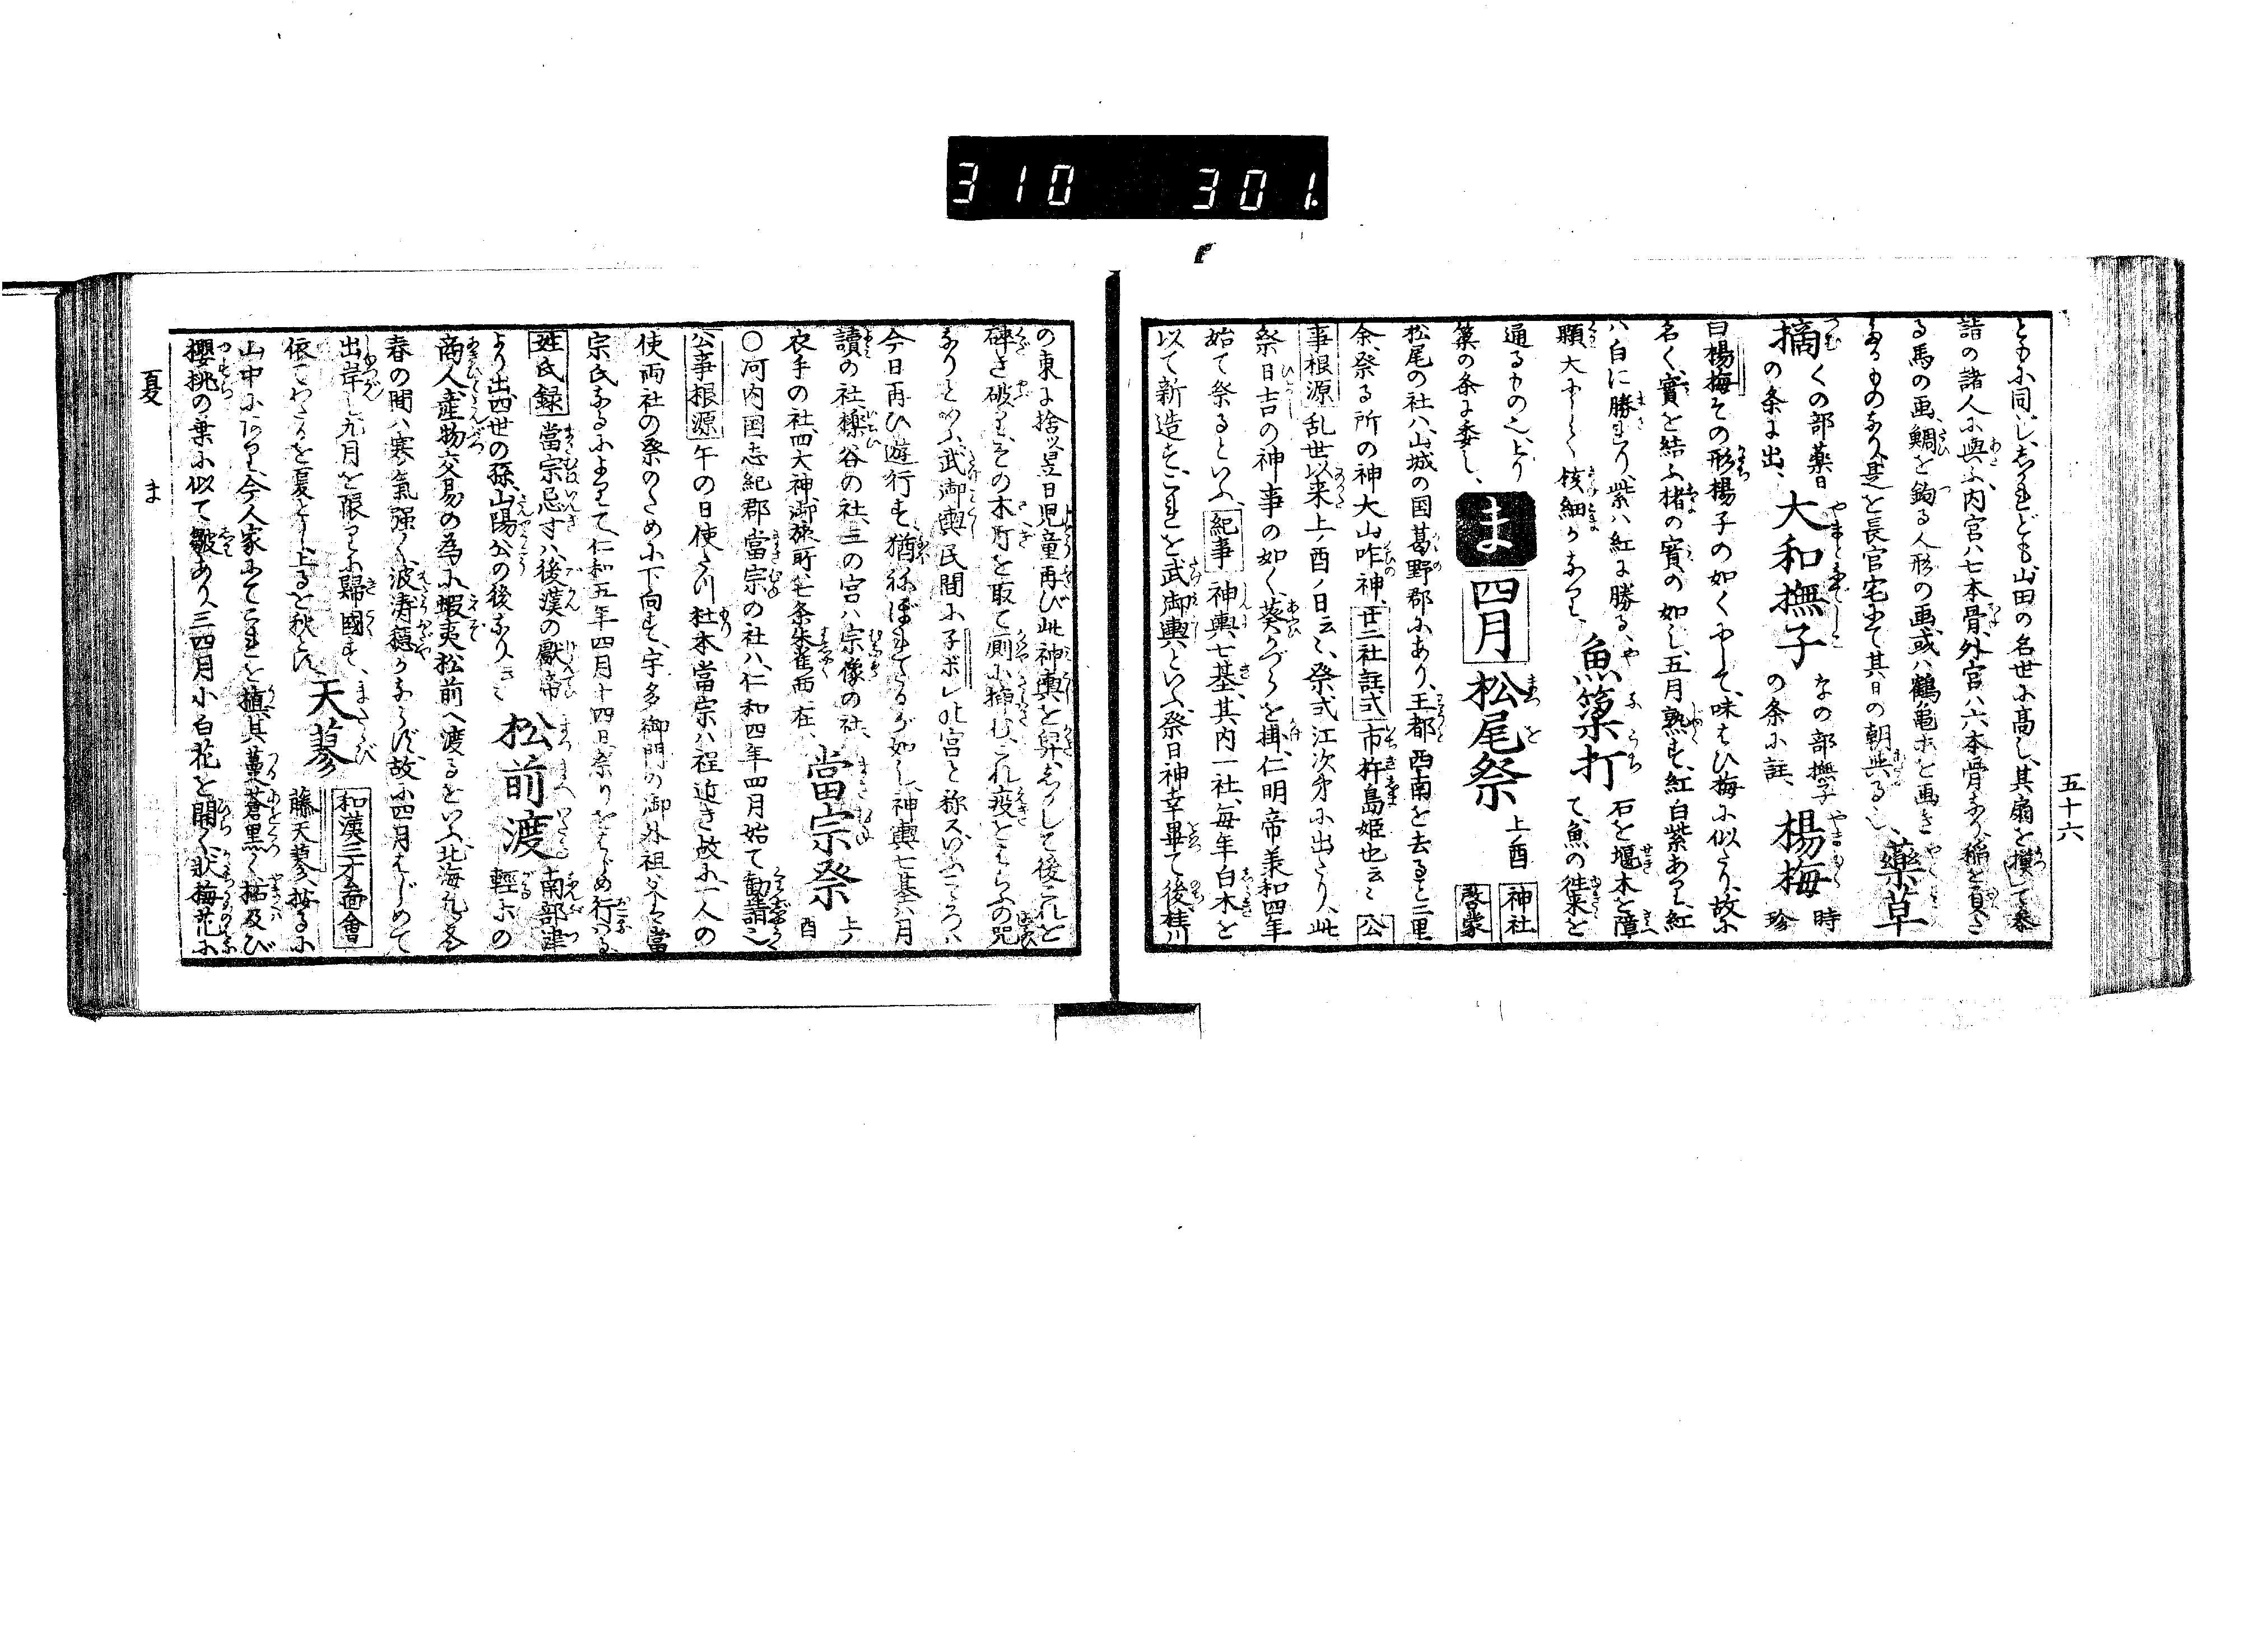 310 301.
五十六
ともに同じ、しかれども山田の名世に高し、其扇を摸して参
詣の諸人に與ふ、内宮ハ七本骨、外宮ハ六本骨なり、稲を負さ
る馬の画、鯛を鉤る人形の画、或ハ鶴亀ホを画き
たるものなり、是を長官宅にて其日の朝與る也、 藥草
摘 くの部藥日の条に出、 大和撫子 なの部撫子の条に註、 楊梅 時珍
曰楊梅その形楊子の如くにして、味はひ梅に似たり、故に
名く、實を結ふ楮の實の如し、五月熟す、紅白紫あり、紅
ハ白に勝れり、紫ハ紅に勝る、
顆大にして核細かなり、 魚簗打 石を堰木を障て、魚の徃来を
通るもの也、上り
簗の条に委し、 ま 四月 松尾祭 上ノ酉 神社啓蒙
松尾の社ハ、山城の国葛野郡にあり、王都西南を去ると二里
余、祭る所の神大山咋神、廿二社註式 市杵島姫也云々 公
事根源 乱世以来上ノ酉ノ日云々、祭式江次第に出たり、此
祭日吉の神事の如く、葵かづらを掛、仁明帝美和四年
始て祭るといふ、紀事 神輿七基、其内一社、毎年白木を
以て新造す、これを武御輿といふ、祭日神幸畢て後、桂川
の東に捨ッ、翌日児童再び此神輿を舁、しかして後これを
碎き破り、その木片を取て厠に挿む、これ疫をはらふの咒
なりとぞ、武御輿民間に子ボレ此宮と称ス、いふこころハ
今日再ひ遊行す、猶ねぼれたるが如し、神輿七基、八月
讀の社、櫟谷の社、三の宮ハ宗像の社、
衣手の社、四大神、御旅所七条朱雀西在、 當宗祭 上ノ酉
〇河内国志紀郡當宗の社ハ、仁和四年四月始て勧請也
公事根源 午の日使たつ、杜本當宗ハ程近き故に、一人の
使、両社の祭のために下向す、宇多御門の御外祖父ハ當
宗氏なるによりて、仁和五年四月十四日祭りをはじめ行ハる
姓氏録 當宗忌寸ハ、後漢の獻帝
より出、四世の孫、山陽公の後なり、云々 松前渡 南部津輕ホの
商人、産物交易の為に蝦夷松前へ渡るをいふ、北海ハ冬
春の間ハ寒氣强く、波濤穏かならず、故に四月はじめて
出岸し、九月を限りに歸國す、
依てわたるを夏とし、上るを秋とす、 天蓼 和漢三才圖會 藤天蓼 按るに
山中にあり、今人家にてこれを植、其蔓蒼黒く、柘及び
櫻桃の葉に似て皺あり、三四月小白花を開く、状梅花に
夏 ま